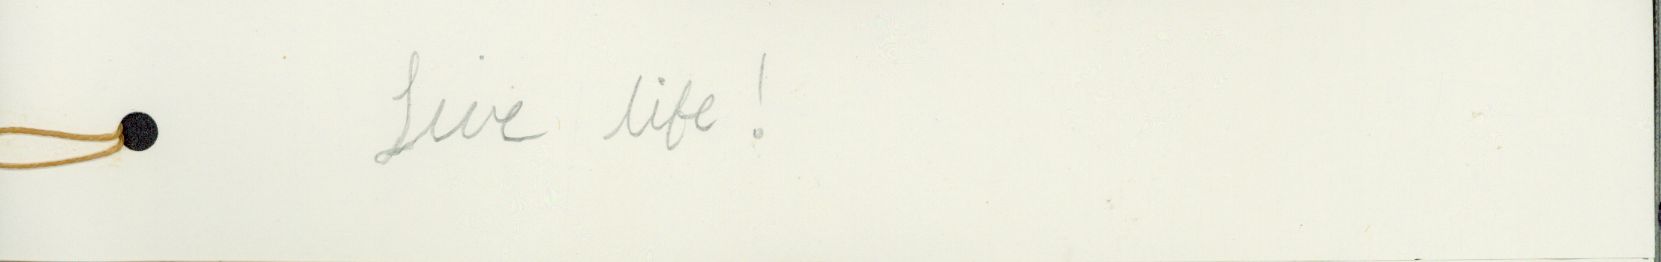 Live life!